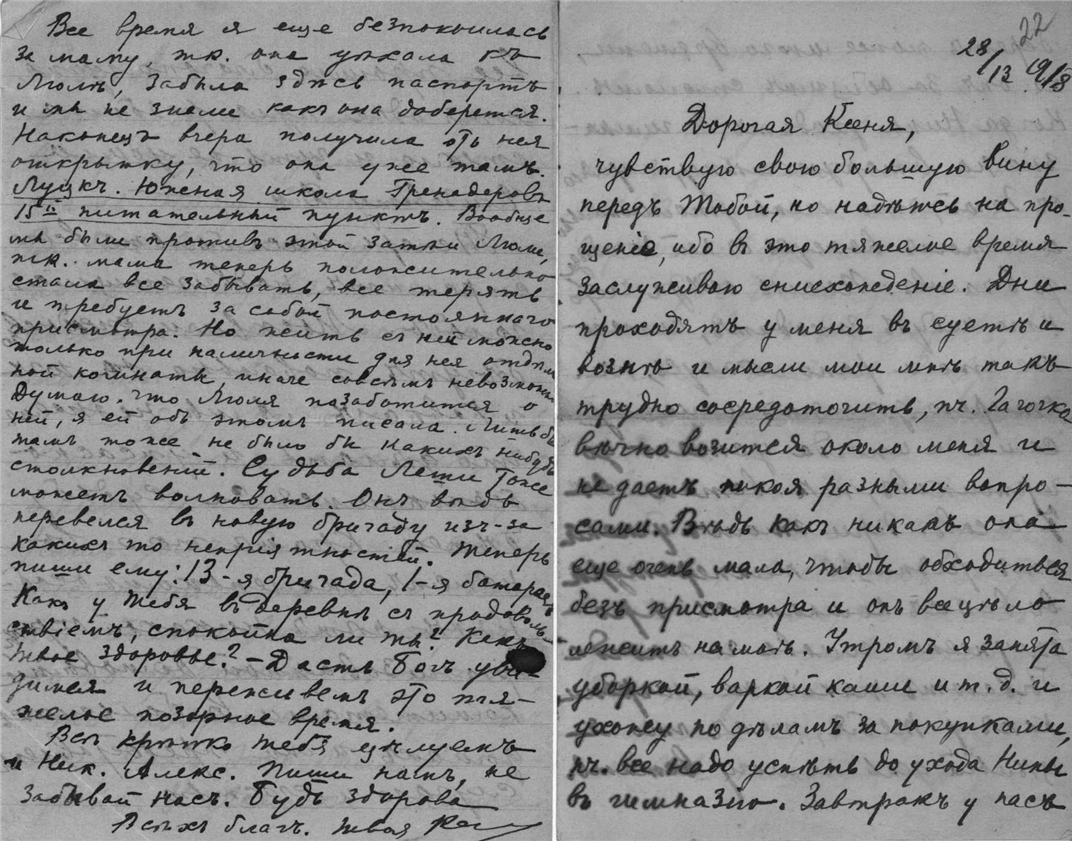 Все время я еще безпокоилась
за маму, т.к. она уѣхала къ
Люлѣ, забыла здѣсь паспортъ
и мы не знали какъ она доберется.
Наконецъ вчера получила отъ нея
открытку, что она уже тамъ.
Луцкъ. Южная школа Гренадеровъ
15й питательный пунктъ. Вообще
мы были противъ этой затѣи Люли,
т.к. мама теперь положительно
стала все забывать, все терять
и требуетъ за собой постояннаго
присмотра. Но жить съ ней можно
только при наличности для нея отдѣль
ной комнаты, иначе совсѣмъ невозможно
Думаю, что Люля позаботится о
ней, я ей объ этомъ писала. Лишь бы
тамъ тоже не было бы какихъ нибудь
столкновенiй. Судьба Лели тоже
можетъ волновать. Онъ вѣдь
перевелся въ новую бригаду изъ-за
какихъ то непрiятностей. Теперь
пиши ему: 13-я бригада, 1-я батарея
Какъ у тебя въ деревнѣ съ продоволь
ствiемъ, спокойна ли ты? Какъ
твое здоровье? – Дастъ Богъ уви
димся и переживемъ это тя-
желое позорное время.
Всѣ крѣпко тебя цѣлуемъ
и Ник. Алекс. Пиши намъ, не
забывай насъ. Будь здорова
Всѣхъ благъ. Твоя
22
28/13 19/18
Дорогая Ксеня,
чувствую свою большую вину
передъ Тобой, но надѣюсь на про-
щенiе, ибо въ это тяжелое время
заслуживаю снисхожденiе. Дни
проходятъ у меня въ суетѣ и
вознѣ и мысли мои мнѣ такъ
трудно сосредоточить, п.ч. Гагочка
вѣчно возится около меня и
не даетъ покоя разными вопро-
сами. Вѣдь какъ никакъ она
еще очень мала, чтобы обходиться
безъ присмотра и онъ всецѣло
лежитъ на мнѣ. Утромъ я занята
уборкой, варкой каши и т.д. и
ухожу по дѣламъ за покупками,
п.ч. все надо успѣть до ухода Нины
въ гимназiю. Завтракъ у насъ